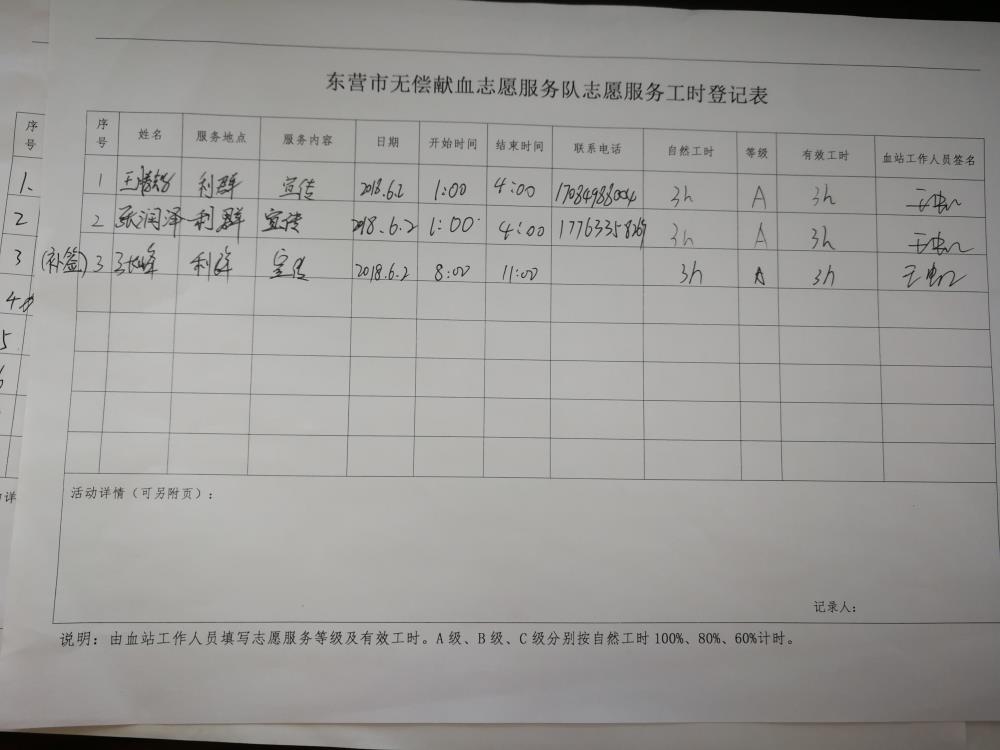 东营市无偿献血志愿服务队志愿服务工时登记表
序号 姓名 服务地点 服务内容 日期 开始时间 结束时间 联系电话 自然工时 等级 有效工时 血站工作人员签名
1 利群 宣传 2018.6.2 1:00 4:00 17084988004 3h A 3h
2 张润泽 利群 宣传 2018.6.2 1:00 4:00 3h A 3h
(补签) 3 利群 宣传 2018.6.2 8:00 11:00 3h A 3h
活动详情（可另附页）：
记录人：
说明：由血站工作人员填写志愿服务等级及有效工时。A 级、B 级、C 级分别按自然工时 100%、80%、60%计时。
序号
1.
2
3
4
5